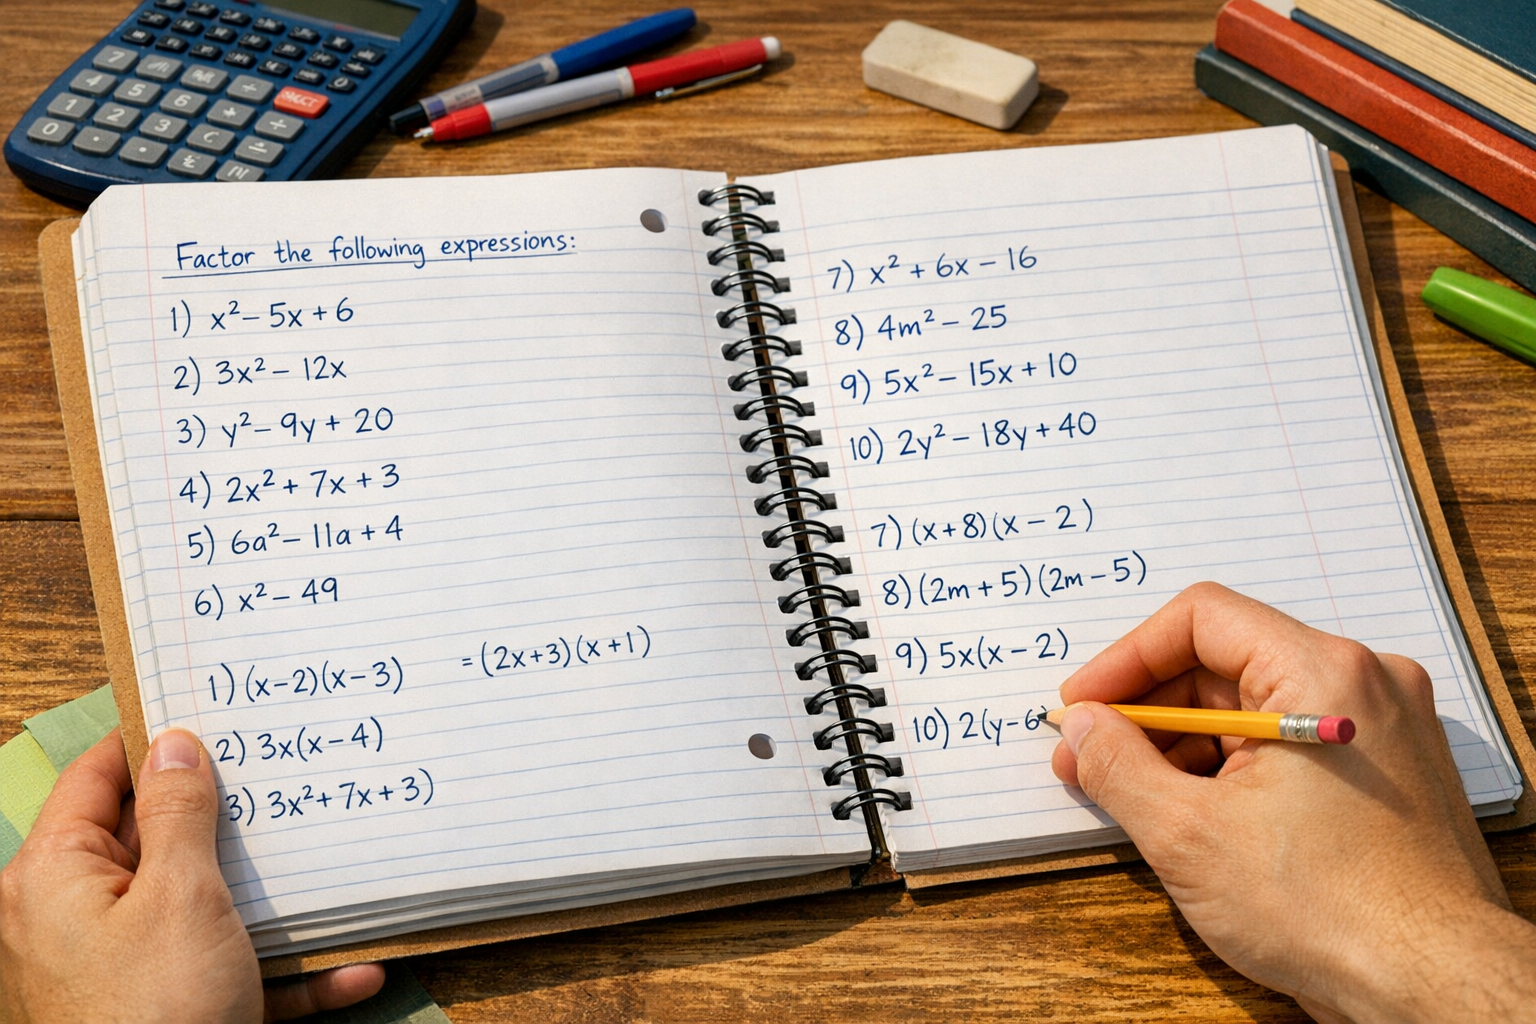 Factor the following expressions:
1) x² – 5x + 6
2) 3x² – 12x
3) y² – 9y + 20
4) 2x² + 7x + 3
5) 6a² – 11a + 4
6) x² – 49
1) (x – 2)(x – 3) = (2x + 3)(x + 1)
2) 3x(x – 4)
3) 3x² + 7x + 3)
7) x² + 6x – 16
8) 4m² – 25
9) 5x² – 15x + 10
10) 2y² – 18y + 40
7) (x + 8)(x – 2)
8) (2m + 5)(2m – 5)
9) 5x(x – 2)
10) 2(y – 6)